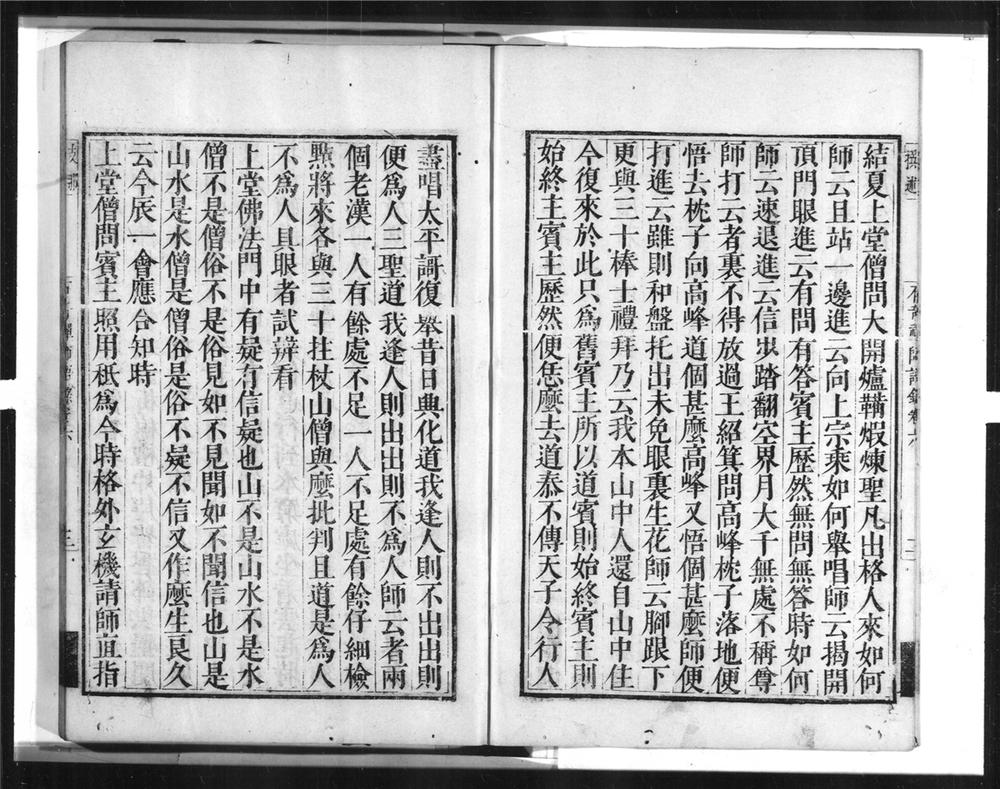 結夏上堂僧問大開爐鞴煆煉聖凡出格人來如何
師云且站一邊進云向上宗乘如何舉唱師云揭開
頂門眼進云有問有答賓主歷然無問無答時如何
師云速退進云信步踏翻空界月大千無處不稱尊
師打云者裏不得放過王紹箕問高峰枕子落地便
悟去枕子向高峰道個甚麼高峰又悟個甚麼師便
打進云雖則和盤托出未免眼裏生花師云腳跟下
更與三十棒士禮拜乃云我本山中人還自山中住
今復來於此只為舊賓主所以道賓則始終賓主則
始終主賓主歷然便恁麼去道泰不傳天子令行人
盡唱太平謌復舉昔日興化道我逢人則不出出則
便為人三聖道我逢人則出出則不為人師云者兩
個老漢一人有餘處不足一人不足處有餘仔細檢
點將來各與三十拄杖山僧與麼批判且道是為人
不為人具眼者試辨看
上堂佛法門中有疑有信疑也山不是山水不是水
僧不是僧俗不是俗見如不見聞如不聞信也山是
山水是水僧是僧俗是俗不疑不信又作麼生良久
云今辰一會應合知時
上堂僧問賓主照用秪為今時格外玄機請師直指